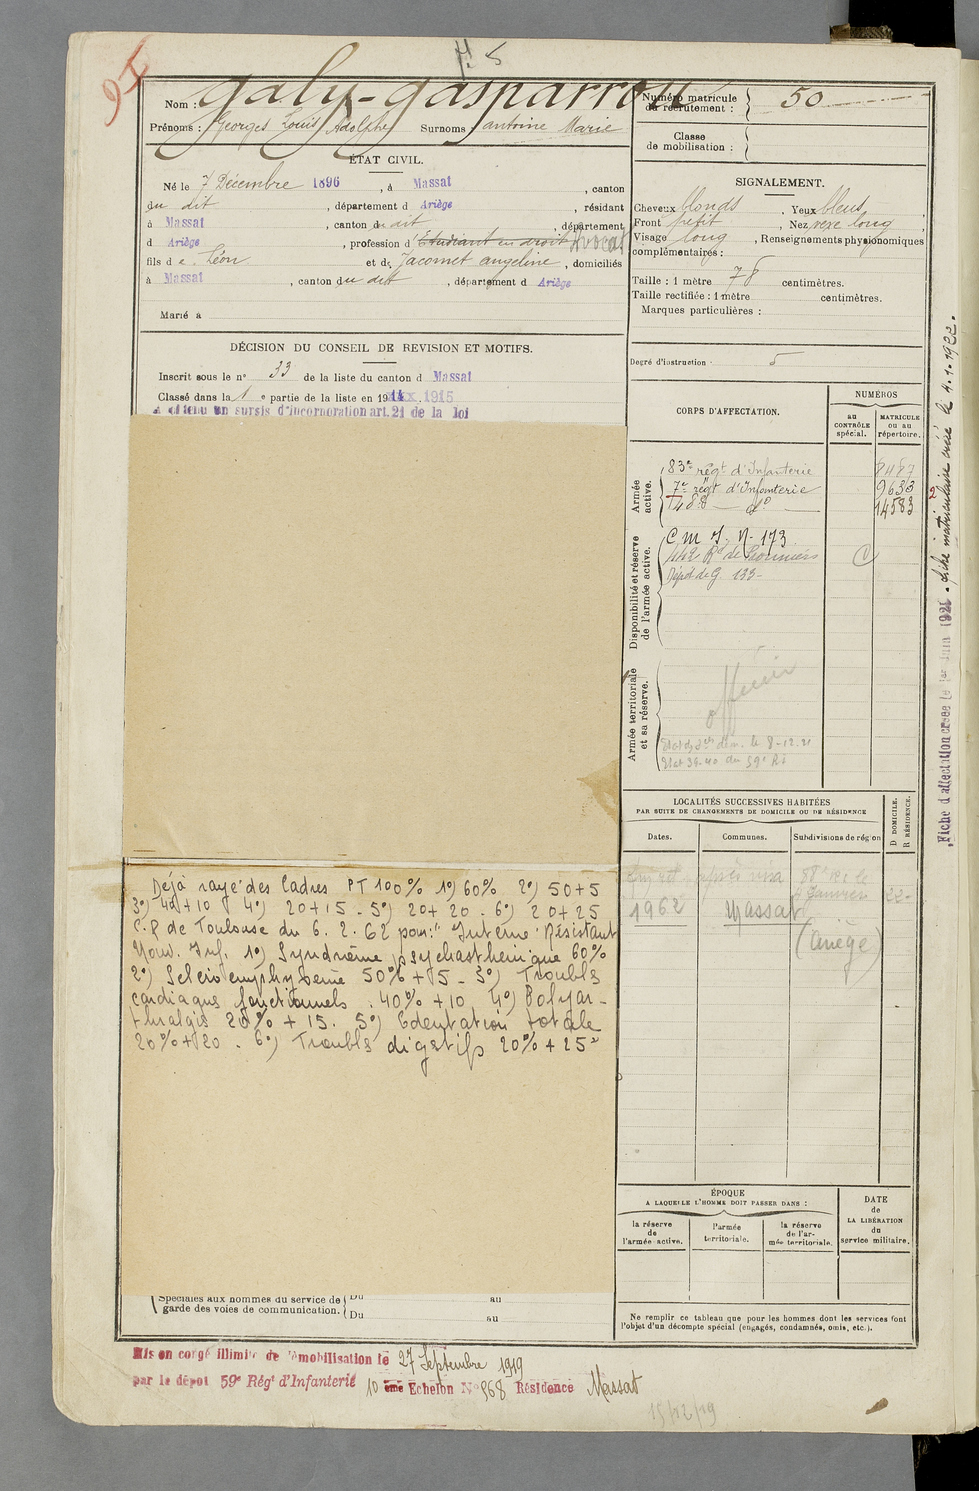 95
f. 5
Nom : Galy-Gasparrou
Prénoms : Georges Louis Adolphe Surnoms : Antoine Marie
Numéro matricule du recrutement : 50
Classe de mobilisation :
ÉTAT CIVIL.
Né le 7 Décembre 1896, à Massat, canton
du dit, département d Ariège, résidant
à Massat, canton du dit, département
d Ariège, profession d'Etudiant en droit Avocat
fils de Léon et de Jacomet Angeline, domiciliés
à Massat, canton du dit, département d Ariège
Marié à
SIGNALEMENT.
Cheveux blonds, Yeux bleus
Front petit, Nez rexe long
Visage long, Renseignements physionomiques
complémentaires :
Taille : 1 mètre 78 centimètres.
Taille rectifiée : 1 mètre centimètres.
Marques particulières :
Degré d'instruction : 5
DÉCISION DU CONSEIL DE REVISION ET MOTIFS.
Inscrit sous le n° 33 de la liste du canton d Massat
Classé dans la 1e partie de la liste en 1915
a obtenu un sursis d'incorporation art. 21 de la loi
Déjà rayé des Cadres PT 100% 1°) 60% 2°) 50+5
3°) 40+10 4°) 20+15 - 5°) 20+20 - 6°) 20+25
C.R de Toulouse du 6.2.62 pour: "Interné Résistant
Nouv. Inf. 1°) Syndrome psychasthénique 60%
2°) Scléro emphysème 50% +5 - 3°) Troubles
cardiaques fonctionnels . 40% +10 4°) Polyar-
thralgis 20% + 15. 5°) Edentation totale
20% +20 . 6°) Troubles digestifs 20% + 25"
Spéciales aux hommes du service de garde des voies de communication.
Du au
Du au
CORPS D'AFFECTATION.
NUMÉROS
au CONTRÔLE spécial.
MATRICULE ou au répertoire.
Armée active.
83e régt d'Infanterie 8487
7e régt d'Infanterie 9633
do 14583
Disponibilité et réserve de l'armée active.
C M I. N. 173
Dépôt de G. 133-
Armée territoriale et sa réserve.
officier
LOCALITÉS SUCCESSIVES HABITÉES
PAR SUITE DE CHANGEMENTS DE DOMICILE OU DE RÉSIDENCE
Dates. Communes. Subdivisions de région
D DOMICILE. R RÉSIDENCE.
1962 Massat
(Ariège)
ÉPOQUE
A LAQUELLE L'HOMME DOIT PASSER DANS :
la réserve de l'armée active.
l'armée territoriale.
la réserve de l'armée territoriale.
DATE de LA LIBÉRATION du service militaire.
Ne remplir ce tableau que pour les hommes dont les services font
l'objet d'un décompte spécial (engagés, condamnés, omis, etc.).
Mis en congé illimité de démobilisation le 27 Septembre 1919
par le dépôt 59e Régt d'Infanterie 10 ème Echelon N° 968 Résidence Massat
15/12/19
Fiche d'affectation créée le 1er Juin 1921. fiche matriculaire créée le 4.1.1922.